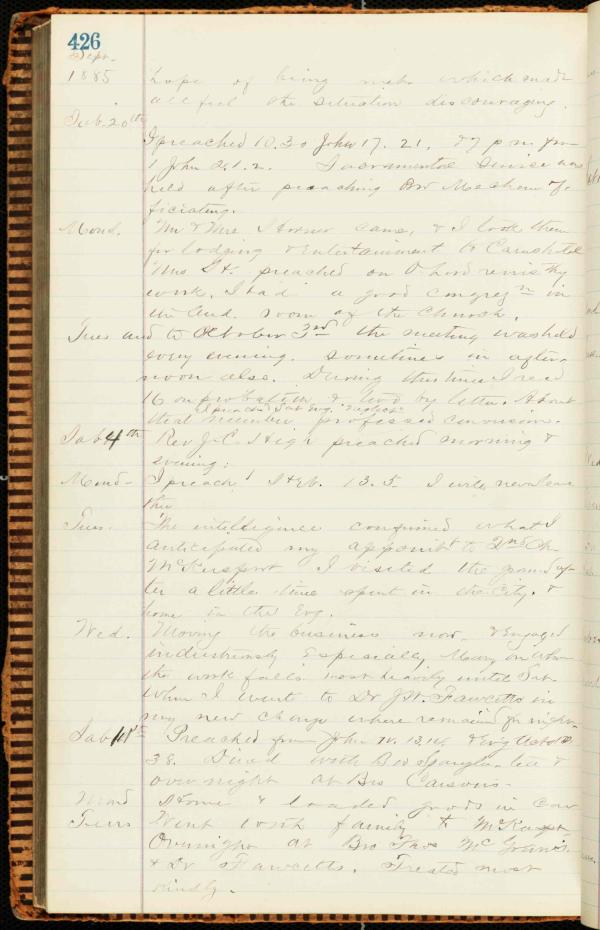 426
Sept.
1885 hope of being met which made
all feel the situation discouraging.
Sab. 20th
I preached 10.30 John 17. 21. & 7 p m from
1 John 2. 1. 2. Sacramental Service was
held after preaching Bro Mechem of-
ficiating.
Mond. Mr & Mrs Horner came, & I took them
for lodging & entertainment to
Mrs St. preached on
work. I had a good congregn in
the Aud. room of the Church.
Tues and to October 3rd the meeting was held
every evening. sometimes in after-
noon also. During this time I recd
16 on probation & two by letter. About
I preached Sat Evg.
that number professed conversion.
Sab 4th Rev J. C. High preached morning &
evening.
Mond- I preachd Heb. 13. 5. I will never leave
thee
Tues. The intelligence confirmed what I
anticipated my appointt to 2nd Ch.
McKeesport I visited the ground af-
ter a little time spent in the City. &
home in the Evg.
Wed. Moving the business now- & Engaged
industriously Especially Mary on whom
the work falls most heavily until Sat.
When I went to Dr J. W. Fawcetts in
my new charge where remained for night.
Sab 11th Preached from John & Evg Acts
38. Dined with Bro &
over night at Bro Carsons-
Mond Home & loaded goods in Car
Tues Went with family to McKspt
Overnight at Bro Thos
& Dr Fawcetts. Treated most
kindly.